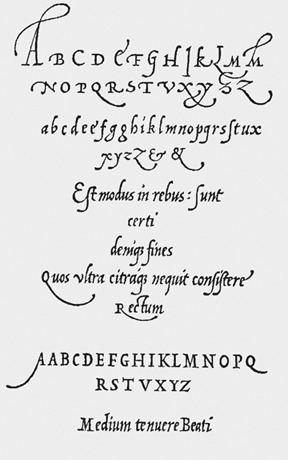 A B C D E F G H I K L M M
N O P Q R S T V X Y Z Z
a b c d e e f g g h i k l m n o p q r s ſ t u x
x y z Z & &
Eſt modus in rebus : ſunt
certi
deniqꝫ fines
Quos vltra citraqꝫ nequit conſiſtere
Rectum
A A B C D E F G H I K L M N O P Q
R S T V X Y Z
Medium tenuere Beati